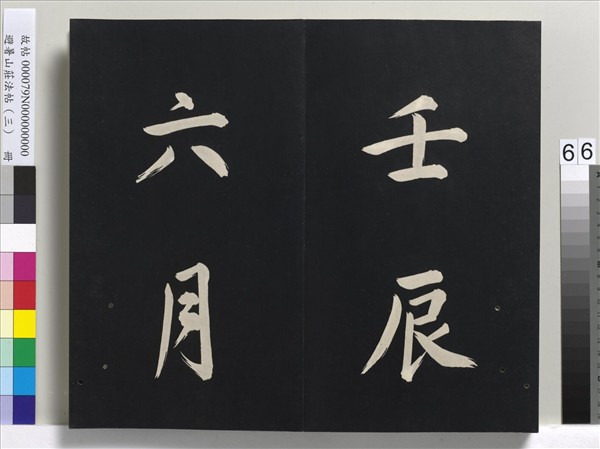 壬辰
六月
故帖 000079N000000000
避暑山莊法帖（三） 冊
66